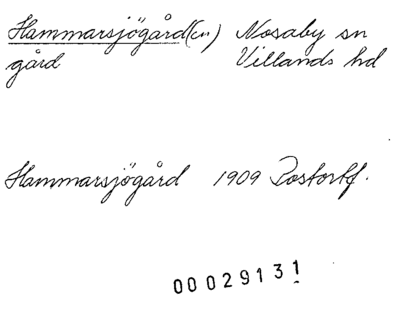 Hammarsjögård(en) Nosaby sn
gård Villands hd
Hammarsjögård 1909 Postortf.
00029131